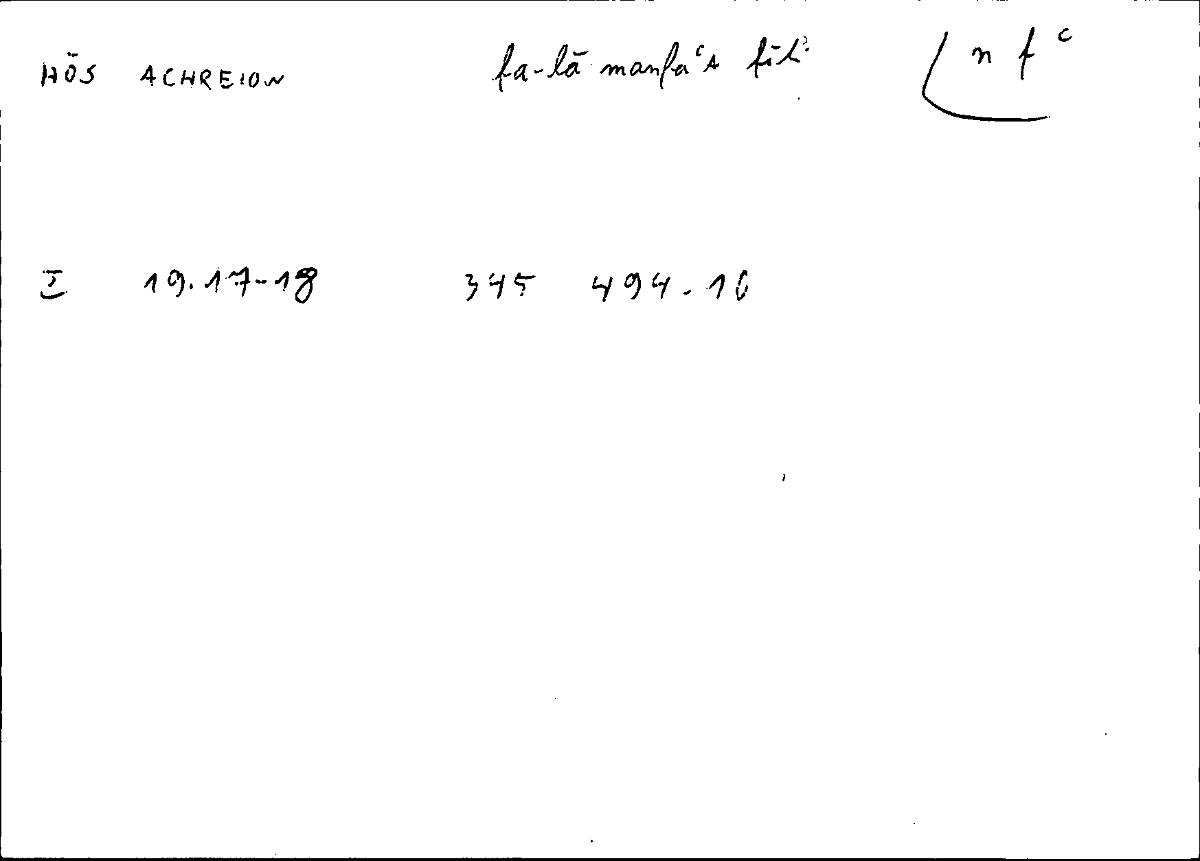 HŌS ACHREION fa-lā manfaʿa fīhi n f ʿ
I 19.17-18 345 494.10